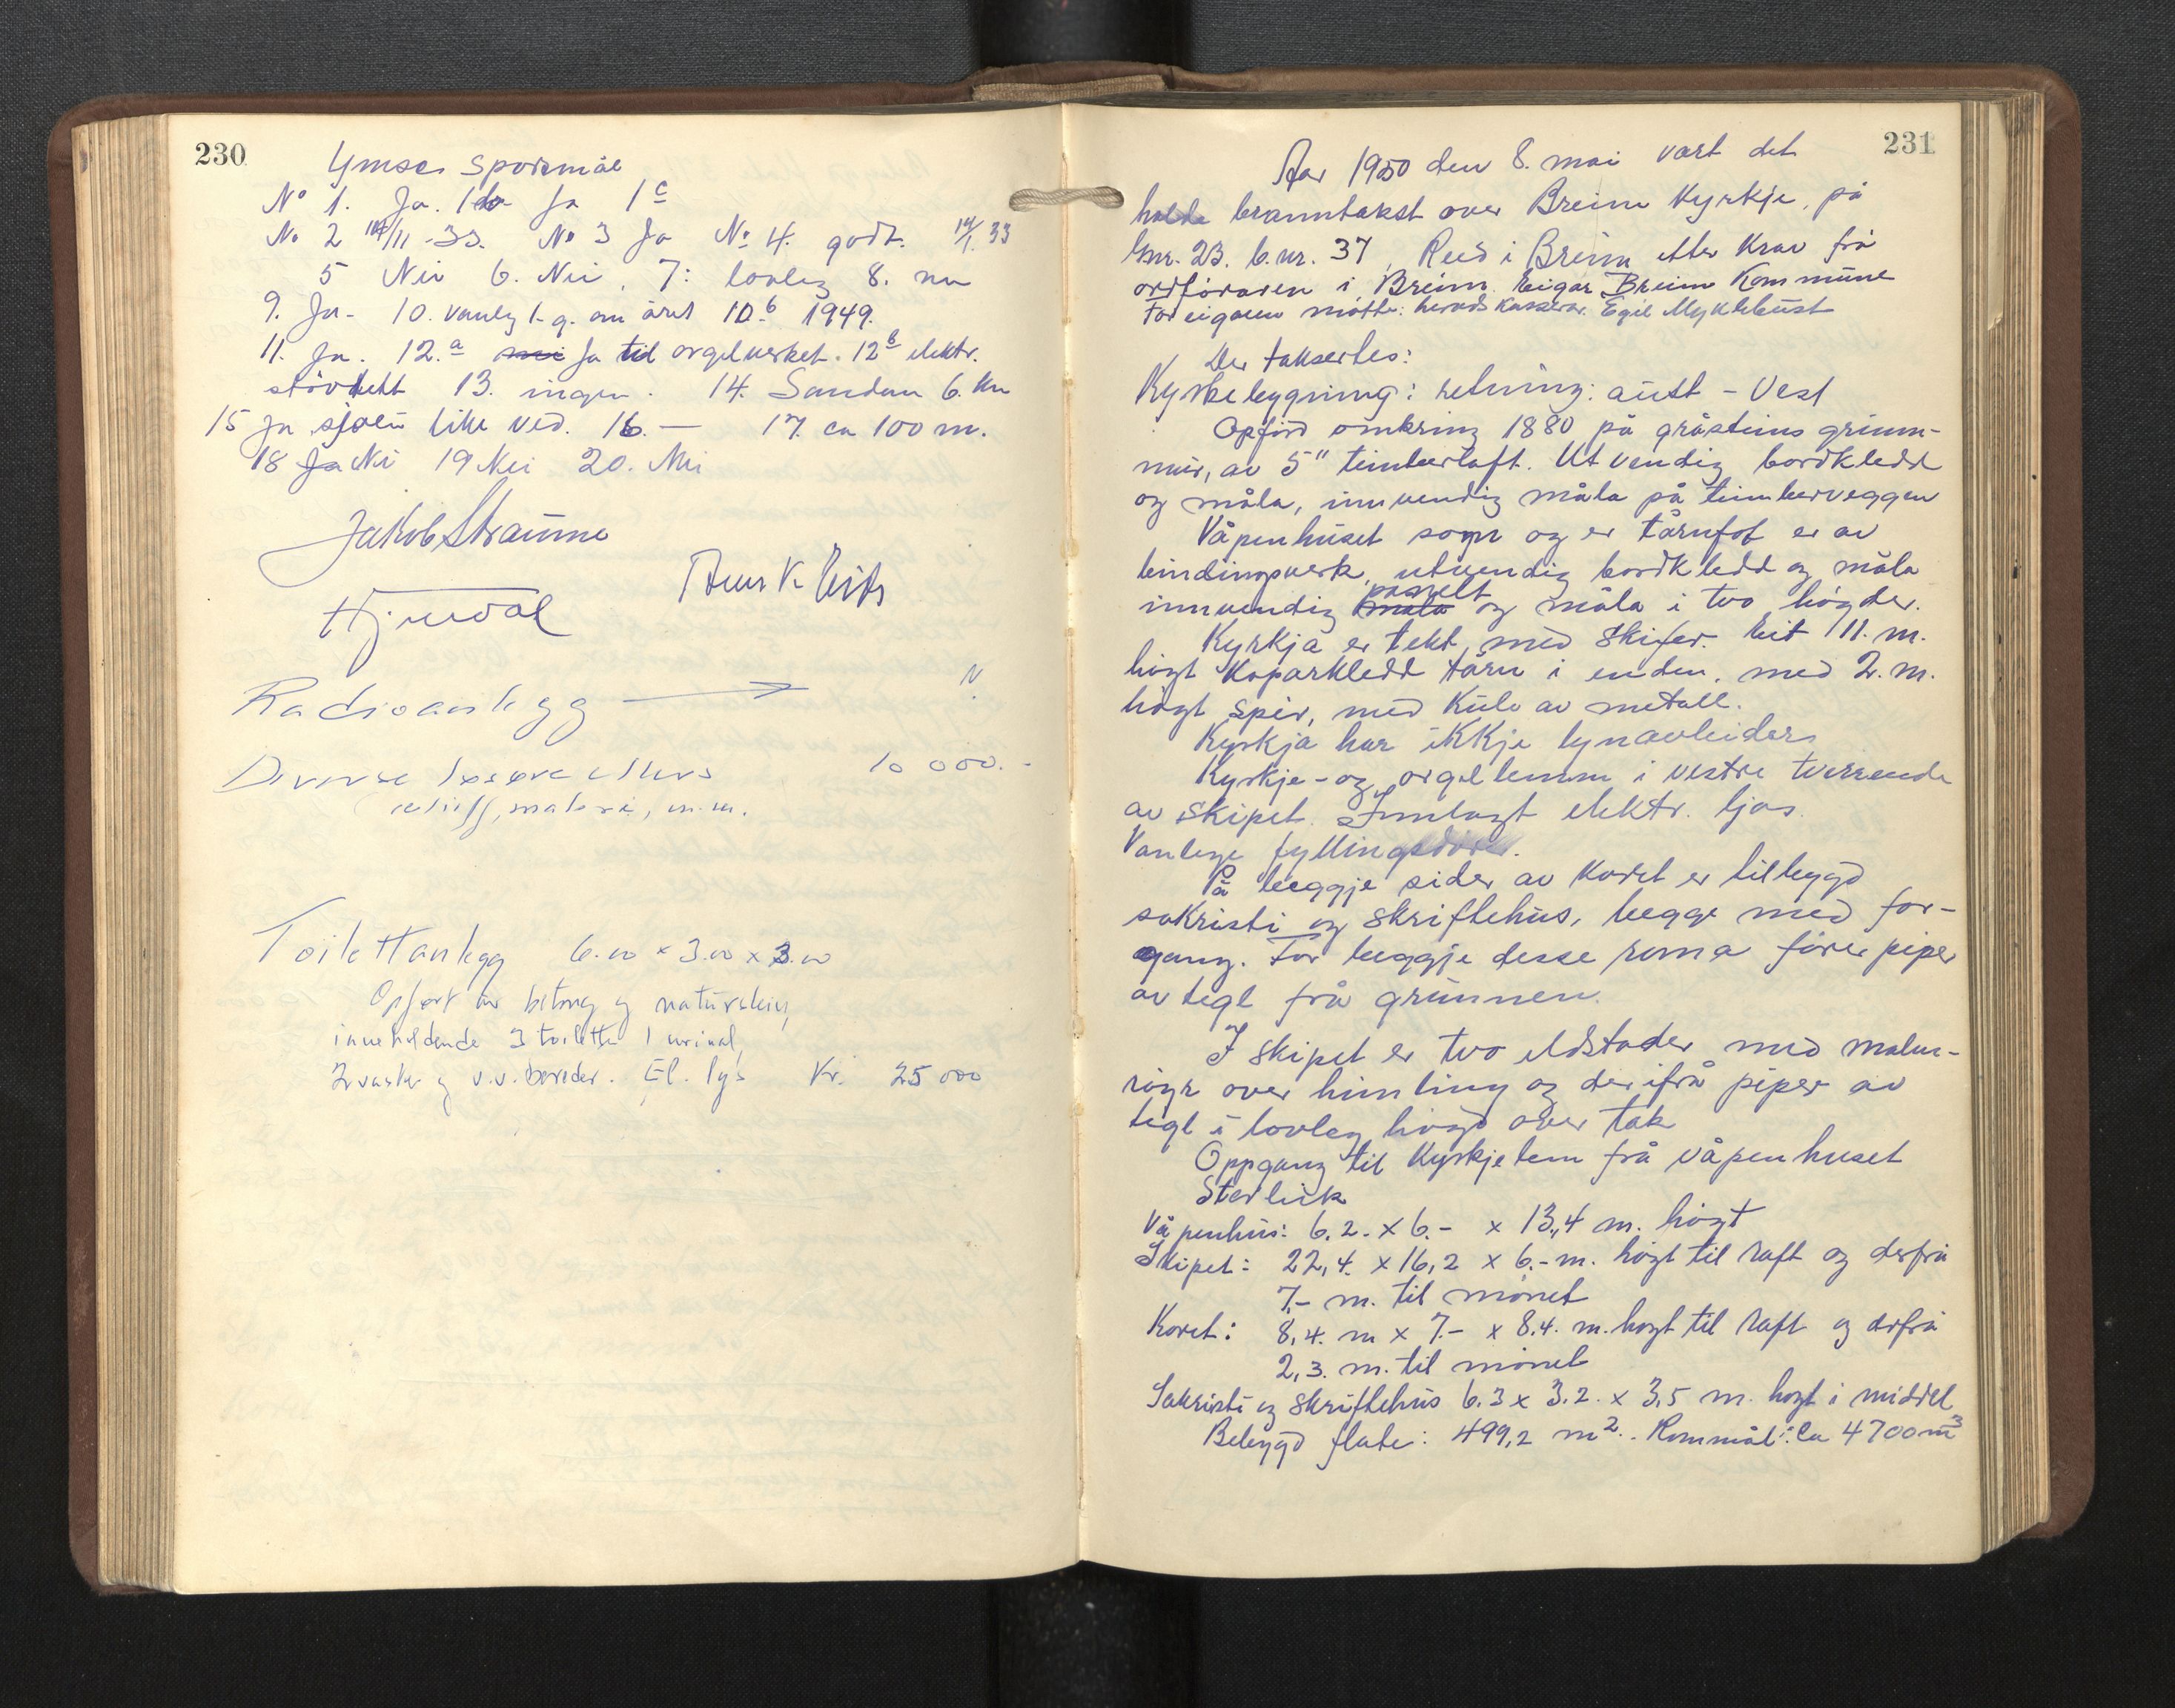 230
Ymse spørsmål
No 1. Ja. 1b Ja 1c
No 2 14/11-33. No 3 Ja No 4. godt. 14/1. 33
5 Nei 6. Nei, 7: lovleg 8. nei
9. Ja - 10. vanleg 1. g. om året 10.b 1949.
11. Ja. 12.a Ja til orgelverket. 12b elektr.
støvlett 13. ingen. 14. Sandane 6. km
15 Ja sjøen like ved. 16. — 17. ca 100 m.
18 Ja Nei 19 Nei 20. Nei
Jakob Straume
Radioanlegg
Diverse 10 000.-
relieff, maleri, m.m.
Toilettanlegg 6.00 x 3.00 x 3.00
Opført av betong og naturstein,
inneholdende 3 toilette 1 urinal,
2 vasker og v.v. bereder. El. lys Kr. 25 000
231
Aar 1950 den 8. mai vart det
halde branntakst over Breim Kyrkje, på
Gnr. 23. b.nr. 37, Reed i Breim etter krav frå
ordføraren i Breim. Eigar Breim Kommune
For eigaren møtte: heradskasserar Egil Myklebust
Der taksertes:
Kyrkebygning: retning: aust - Vest
Oppförd omkring 1880 på gråsteins grunn-
mur, av 5" timberlaft. Utvendig bordkledd
og måla, innvendig måla på timberveggen
Våpenhuset som og er tårnfot er av
bindingsverk, utvendig bordkledd og måla
innvendig måla panelt og måla i two högder.
Kyrkja er tekt med Skifer. Eit 11. m.
högt koparkledd tårn i enden, med 2. m.
högt spir, med kule av metall.
Kyrkja har ikkje lynavleidar
Kyrkje- og orgellemm i vestre tverrende
av skipet. Innlagt elektr. ljos.
Vanlege fyllingsdörer.
På beggje sider av koret er tilbygd
sakristi og skriftehus, begge med for-
gang. For beggje desse roma förer piper
av tegl frå grunnen.
I skipet er two eldstader med malm-
röyr over himling og derifrå piper av
tegl i lovleg högd over tak
Oppgang til Kyrkjelem frå våpenhuset
Storleik
Våpenhus: 6.2. x 6.- x 13,4 m. högt
Skipet: 22,4. x 16,2 x 6.- m. högt til raft og derfrå
7,- m. til mönet
Koret: 8,4. m x 7.- x 8.4. m. högt til raft og derfrå
2,3. m. til mönet
Sakristi og skriftehus 6.3 x 3.2. x 3,5 m. högt i middel
Bebygd flate: 499,2 m2. Rommål: Ca 4700 m3